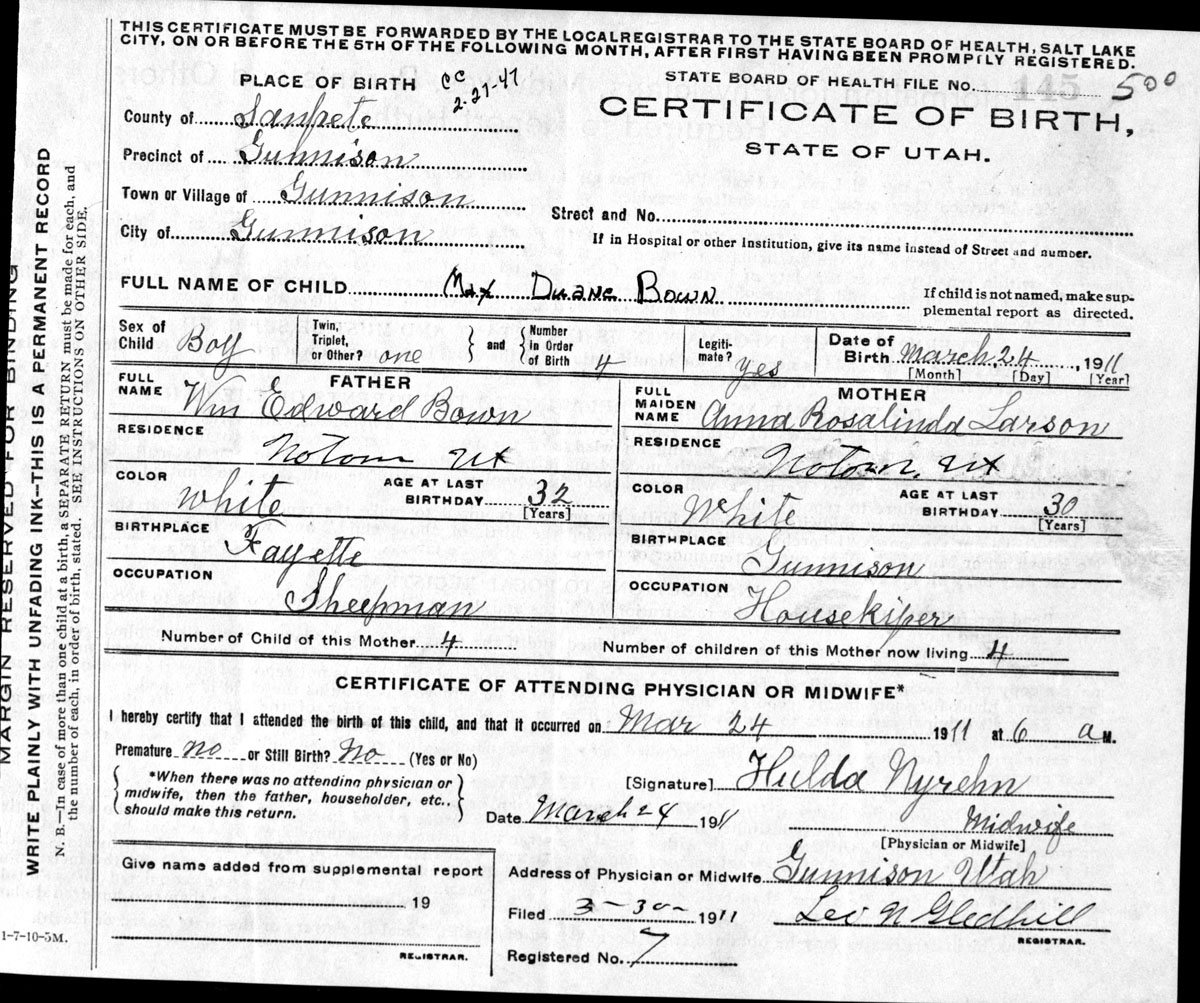 THIS CERTIFICATE MUST BE FORWARDED BY THE LOCALREGISTRAR TO THE STATE BOARD OF HEALTH, SALT LAKE
CITY, ON OR BEFORE THE 5TH OF THE FOLLOWING MONTH, AFTER FIRST HAVING BEEN PROMPTLY REGISTERED.
PLACE OF BIRTH
CC 2-27-47
STATE BOARD OF HEALTH FILE NO. 145 500
CERTIFICATE OF BIRTH,
STATE OF UTAH.
County of Sanpete
Precinct of Gunnison
Town or Village of Gunnison
City of Gunnison
Street and No.
If in Hospital or other Institution, give its name instead of Street and number.
FULL NAME OF CHILD Max Duane Bown
If child is not named, make sup-
plemental report as directed.
Sex of Child Boy
Twin, Triplet, or Other? one
and
Number in Order of Birth 4
Legiti-mate? yes
Date of Birth March 24, 1911
[Month] [Day] [Year]
FATHER
FULL NAME Wm Edward Bown
RESIDENCE Notom Ut
COLOR White
AGE AT LAST BIRTHDAY 32
[Years]
BIRTHPLACE Fayette
OCCUPATION Sheepman
MOTHER
FULL MAIDEN NAME Anna Rosalinda Larson
RESIDENCE Notom, Ut
COLOR White
AGE AT LAST BIRTHDAY 30
[Years]
BIRTHPLACE Gunnison
OCCUPATION Housekiper
Number of Child of this Mother 4
Number of children of this Mother now living 4
CERTIFICATE OF ATTENDING PHYSICIAN OR MIDWIFE*
I hereby certify that I attended the birth of this child, and that it occurred on Mar 24 1911 at 6 a M.
Premature No or Still Birth? No (Yes or No)
*When there was no attending physician or
midwife, then the father, householder, etc.,
should make this return.
[Signature] Hulda Nyrehn
Date March 24 1911
Midwife
[Physician or Midwife]
Give name added from supplemental report
19
REGISTRAR.
Address of Physician or Midwife Gunnison Utah
Filed 3-30- 1911
Leo N Gledhill
REGISTRAR.
Registered No. 7
1-7-10-5M.
MARGIN RESERVED FOR BINDING
WRITE PLAINLY WITH UNFADING INK—THIS IS A PERMANENT RECORD
N. B.—In case of more than one child at a birth, a SEPARATE RETURN must be made for each, and
the number of each, in order of birth, stated. SEE INSTRUCTIONS ON OTHER SIDE.